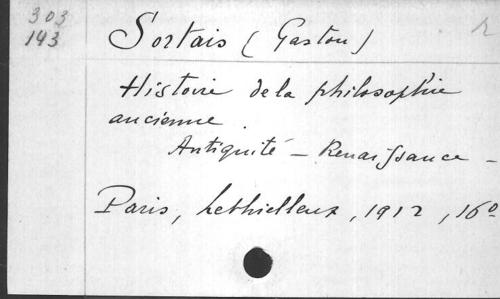 303
143
Sortais (Gaston)
Histoire de la philosophie
ancienne.
Antiquité – Renaissance –
Paris, Lethielleux, 1912, 16°